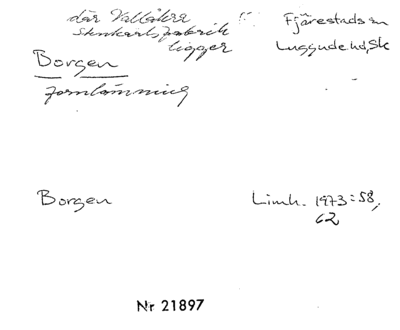 där Vallåkra
Fjärestads sn
stenkärlsfabrik
Luggude hd, Sk
ligger
Borgen
fornlämning
Borgen
Limh. 1973:58,
62
Nr 21897